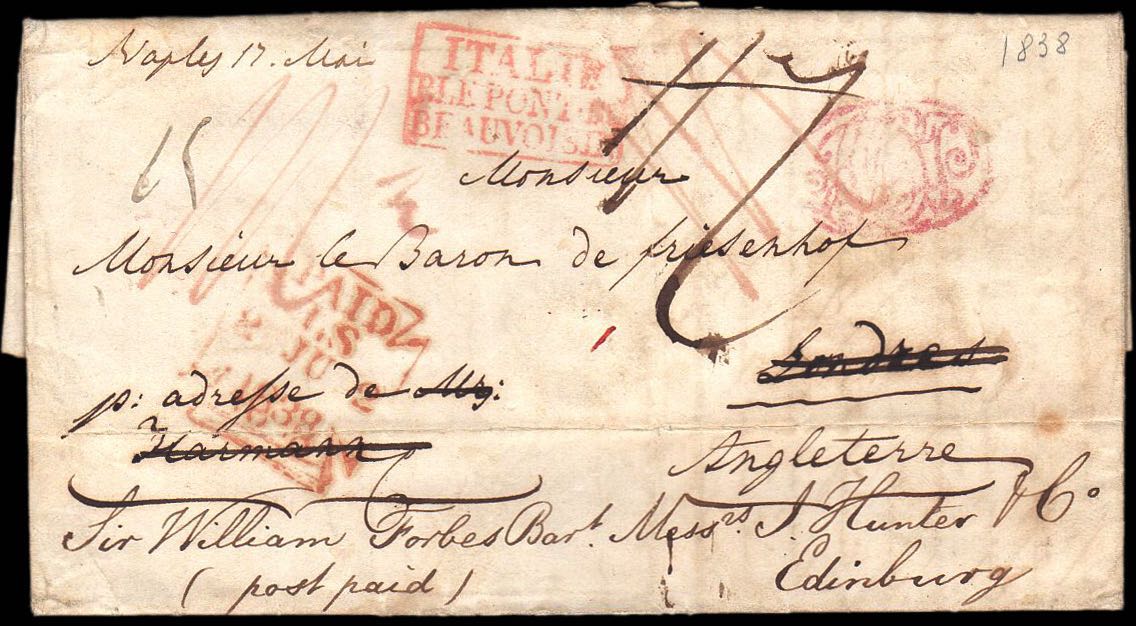 Naples 17. Mai
1838
ITALIE
P.LE PONT-DE
BEAUVOISIN
65
Monsieur
Monsieur le Baron de friesenhof
PAID
JU 2
1838
Londres
p: adresse de Mr:
Harmann
Angleterre
Sir William Forbes Bart. Messrs J. Hunter & Co
(post paid)
Edinburg